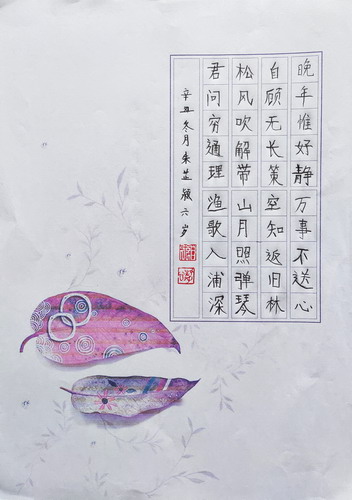 晚年惟好静万事不送心
自顾无长策空知返旧林
松风吹解带山月照弹琴
君问穷通理渔歌入浦深
辛丑冬月朱芷颍六岁